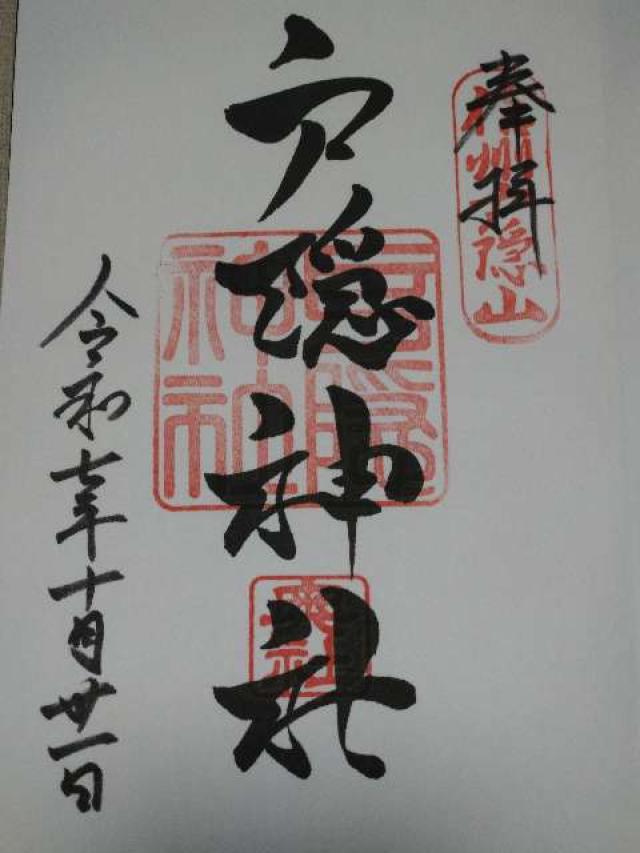 奉拝
信州戸隠山
戸隠神社
戸隠神社
令和七年十月廿一日